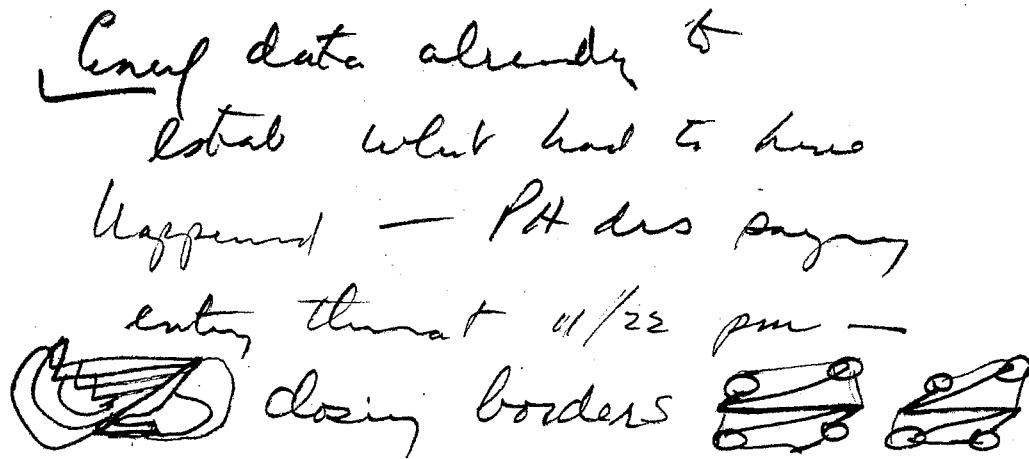 data already to
estab what had to have
happened — PH drs saying
entry throat 11/22 pm —
closing borders